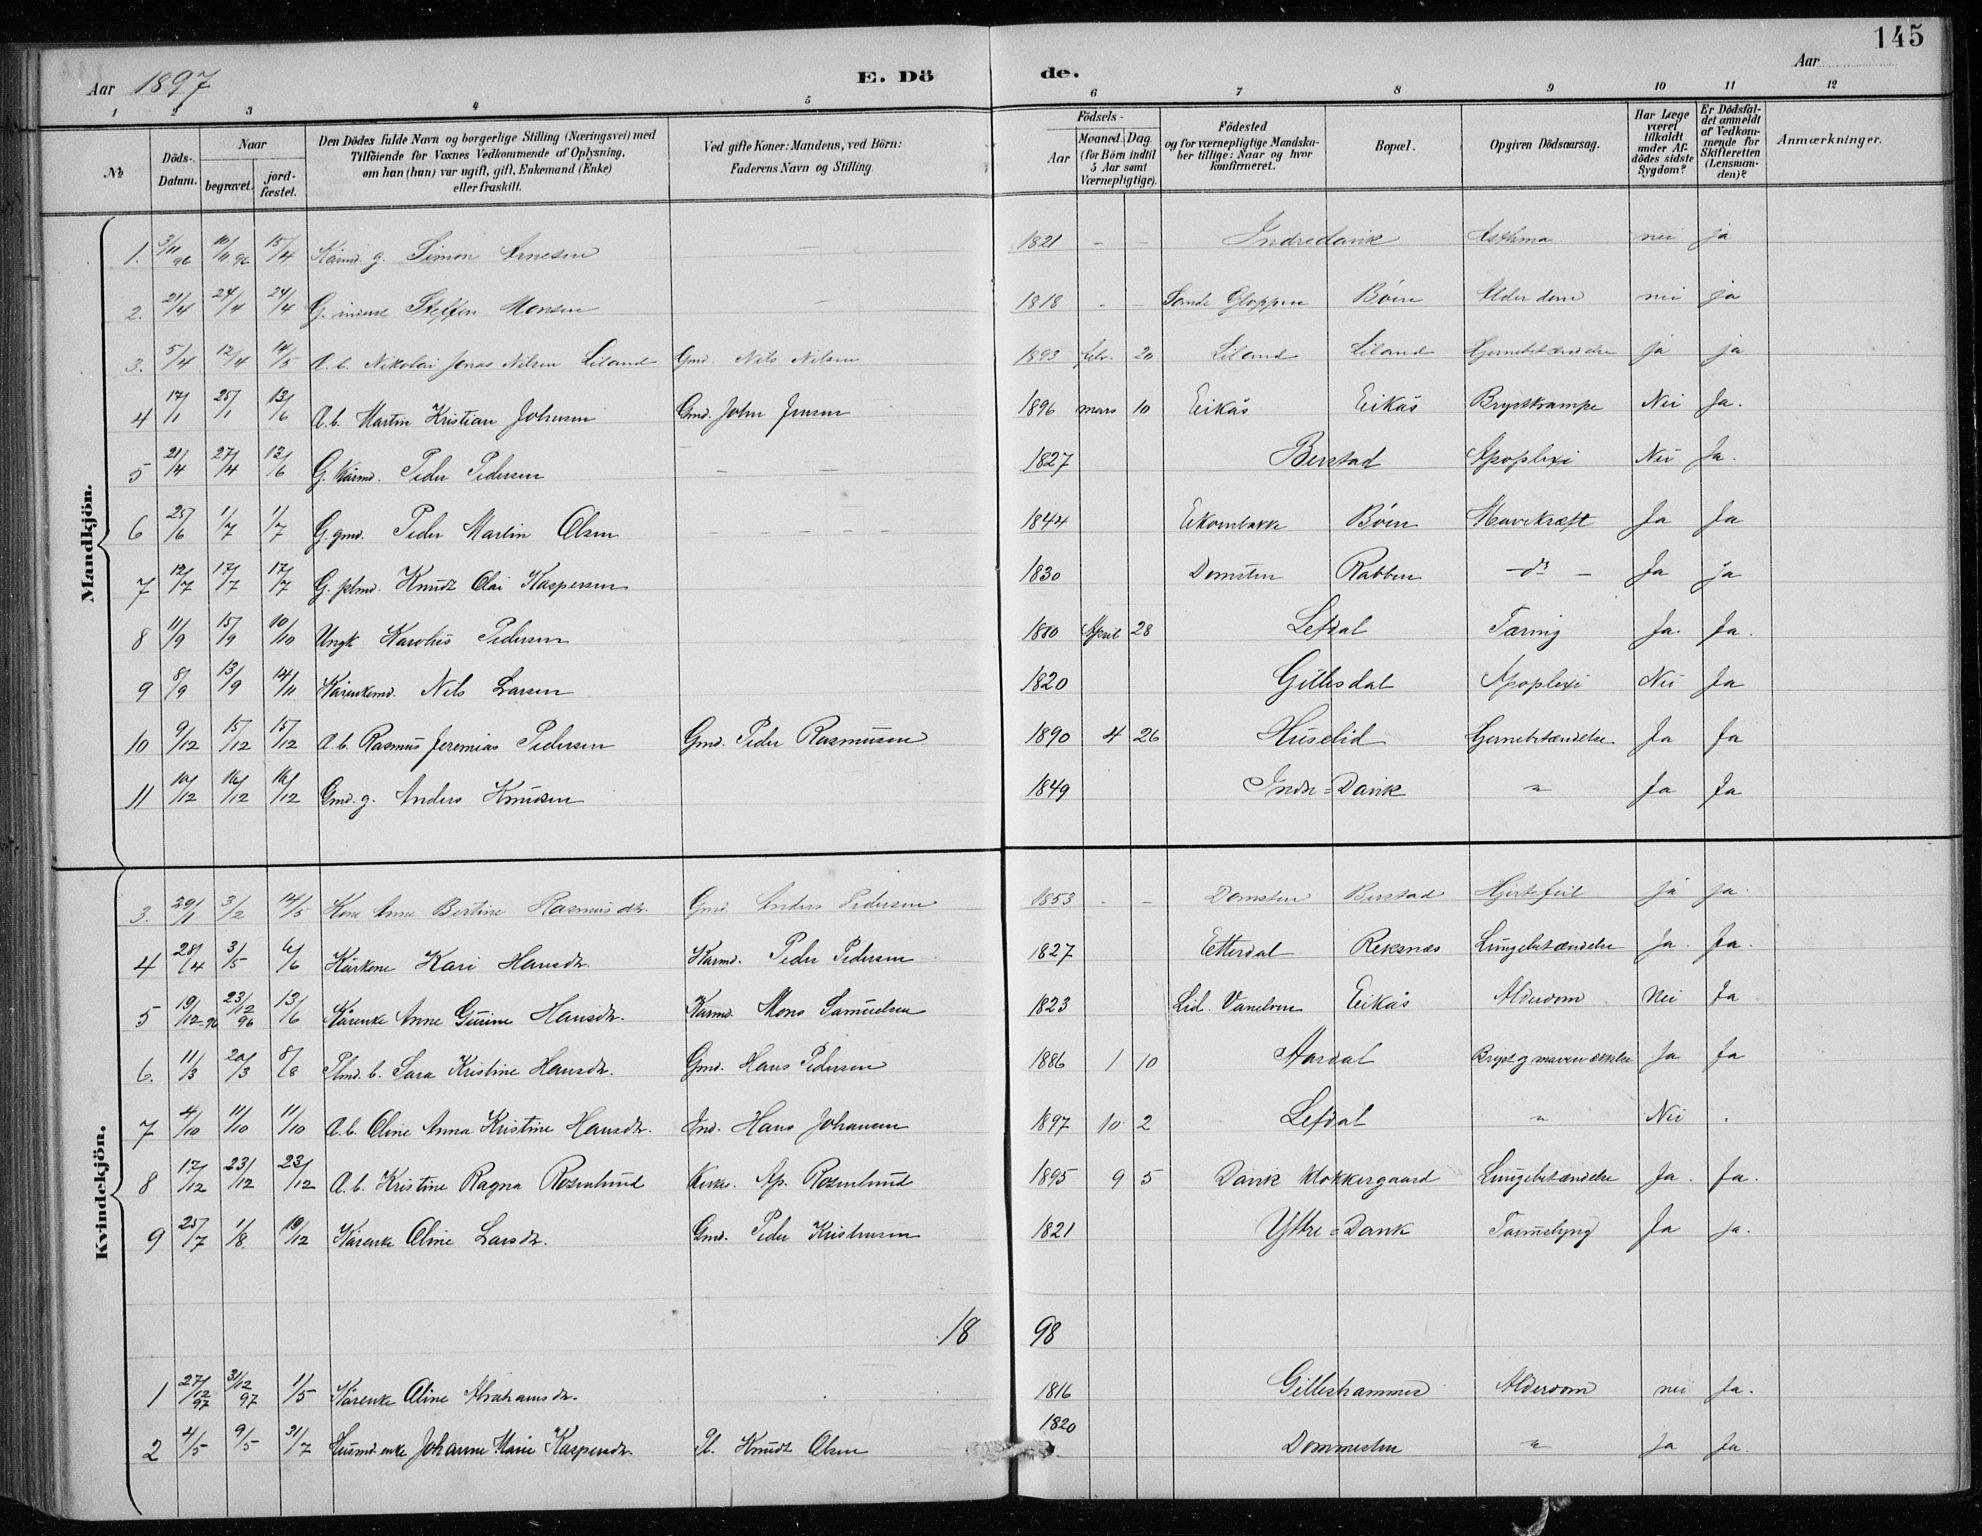 145
Aar 1897 E. Dö de. Aar
1 2 3 4 5 6 7 8 9 10 11 12
№ Döds-Datum. Naar begravet. jord-fæstet. Den Dödes fulde Navn og borgerlige Stilling (Næringsvei) med Tilföiende for Voxnes Vedkommende af Oplysning, om han (hun) var ugift, gift, Enkemand (Enke) eller fraskilt. Ved gifte Koner: Mandens, ved Börn: Faderens Navn og Stilling. Födsels- Aar Maaned. Dag. (for Börn indtil 5 Aar samt Værnepligtige). Födested og for værnepligtige Mandskaber tillige: Naar og hvor konfirmeret. Bopæl. Opgiven Dödsaarsag. Har Læge været tilkaldt under Afdödes sidste Sygdom? Er Dödsfaldet anmeldt af Vedkommende for Skifteretten (Lensmanden)? Anmærkninger.
Mandkjön.
1. 3/11 96 10/11 96 15/4 Kårmd. g. Simon Arnesen 1821 - - Indredavik Asthma nei ja
2. 21/4 24/4 24/4 G. inderst Steffen Monsen - 1818 - - Sande Gloppen Böen Alderdom nei ja
3. 5/4 12/4 14/5 A. b. Nikolai Jonas Nilsen Liland Gmd. Nils Nilsen 1893 febr. 20 Liland Liland Hjernebetændelse ja ja
4 17/1 25/1 13/6 A. b. Martin Kristian Johnsen Gmd. John Jensen 1896 mars 10 Eikås Eikås Brystkrampe Nei Ja.
5 21/4 27/4 13/6 G. Kårmd. Peder Pedersen - - 1827 Berstad Apoplexi Nei Ja.
6 25/6 1/7 1/7 G. gmd. Peder Martin Olsen - - - - - 1844 Eikornbakke Böen Mavekræft Ja Ja
7 12/7 17/7 17/7 G. plmd. Knudt Olai Kaspersen 1830 Domsten Rabben - do - Ja ja
8 11/9 15/9 10/10 Ungk Karolus Pedersen 1880 April 28 Lefdal Tæring Ja. Ja.
9 8/9 13/9 14/11 Kårenkemd. Nils Larsen 1820 Gillesdal Apoplexi Nei Ja
10 9/12 15/12 15/12 A. b. Rasmus Jeremias Pedersen Gmd. Peder Rasmusen 1890 4 26 Huselid Hjernebetændelse Ja Ja
11 10/12 16/12 16/12 Gmd. g. Anders Knudsen 1849 Indre=Davik " Ja Ja
Kvindekjön.
3. 29/1 3/2 14/5 Kone Anna Bertine Rasmusdtr. Gmd. Anders Pedersen 1853 - - Domsten Berstad Hjertefeil ja ja.
4 28/4 3/5 6/6 Kårkone Kari Hansdtr. Kårmd. Peder Pedersen 1827 Etterdal Reksnæs Lungebetændelse Ja. Ja.
5 19/12-96 23/12 96 13/6 Kårenke Anne Gurine Hansdtr. Kårmd. Mons Samuelsen 1823 Lid. Vanelven Eikås Alderdom Nei Ja
6. 11/3 20/3 8/8 Plmd. b. Sara Kristine Hansdtr. Gmd. Hans Pedersen 1886 1 10 Aardal Bryst og maven Ja Ja
7 4/10 11/10 11/10 A. b. Oline Anna Kristine Hansdtr. Ind. Hans Johansen 1897 10 2 Lefdal " Nei .
8 17/12 23/12 23/12 A. b. Kristine Ragna Rosenlund Kirke. Ap. Rosenlund 1895 9 5 Davik Klokkergaard Lungebetændelse Ja. Ja.
9 25/7 1/8 19/12 Kårenke Oline Larsdtr. Gmd. Peder Kristensen 1821 Yttre=Davik Ja ja.
18 98
1 27/12 97 31/12 97 1/5 Kårenke Oline Abrahamsdtr. 1816 Gilleshammer Alderdom nei Ja.
2 4/5 9/5 31/7 Husmd enke Johanne Marie Kaspersdtr. Pl. Knudt Olsen 1820 Dommesten " Ja Ja.